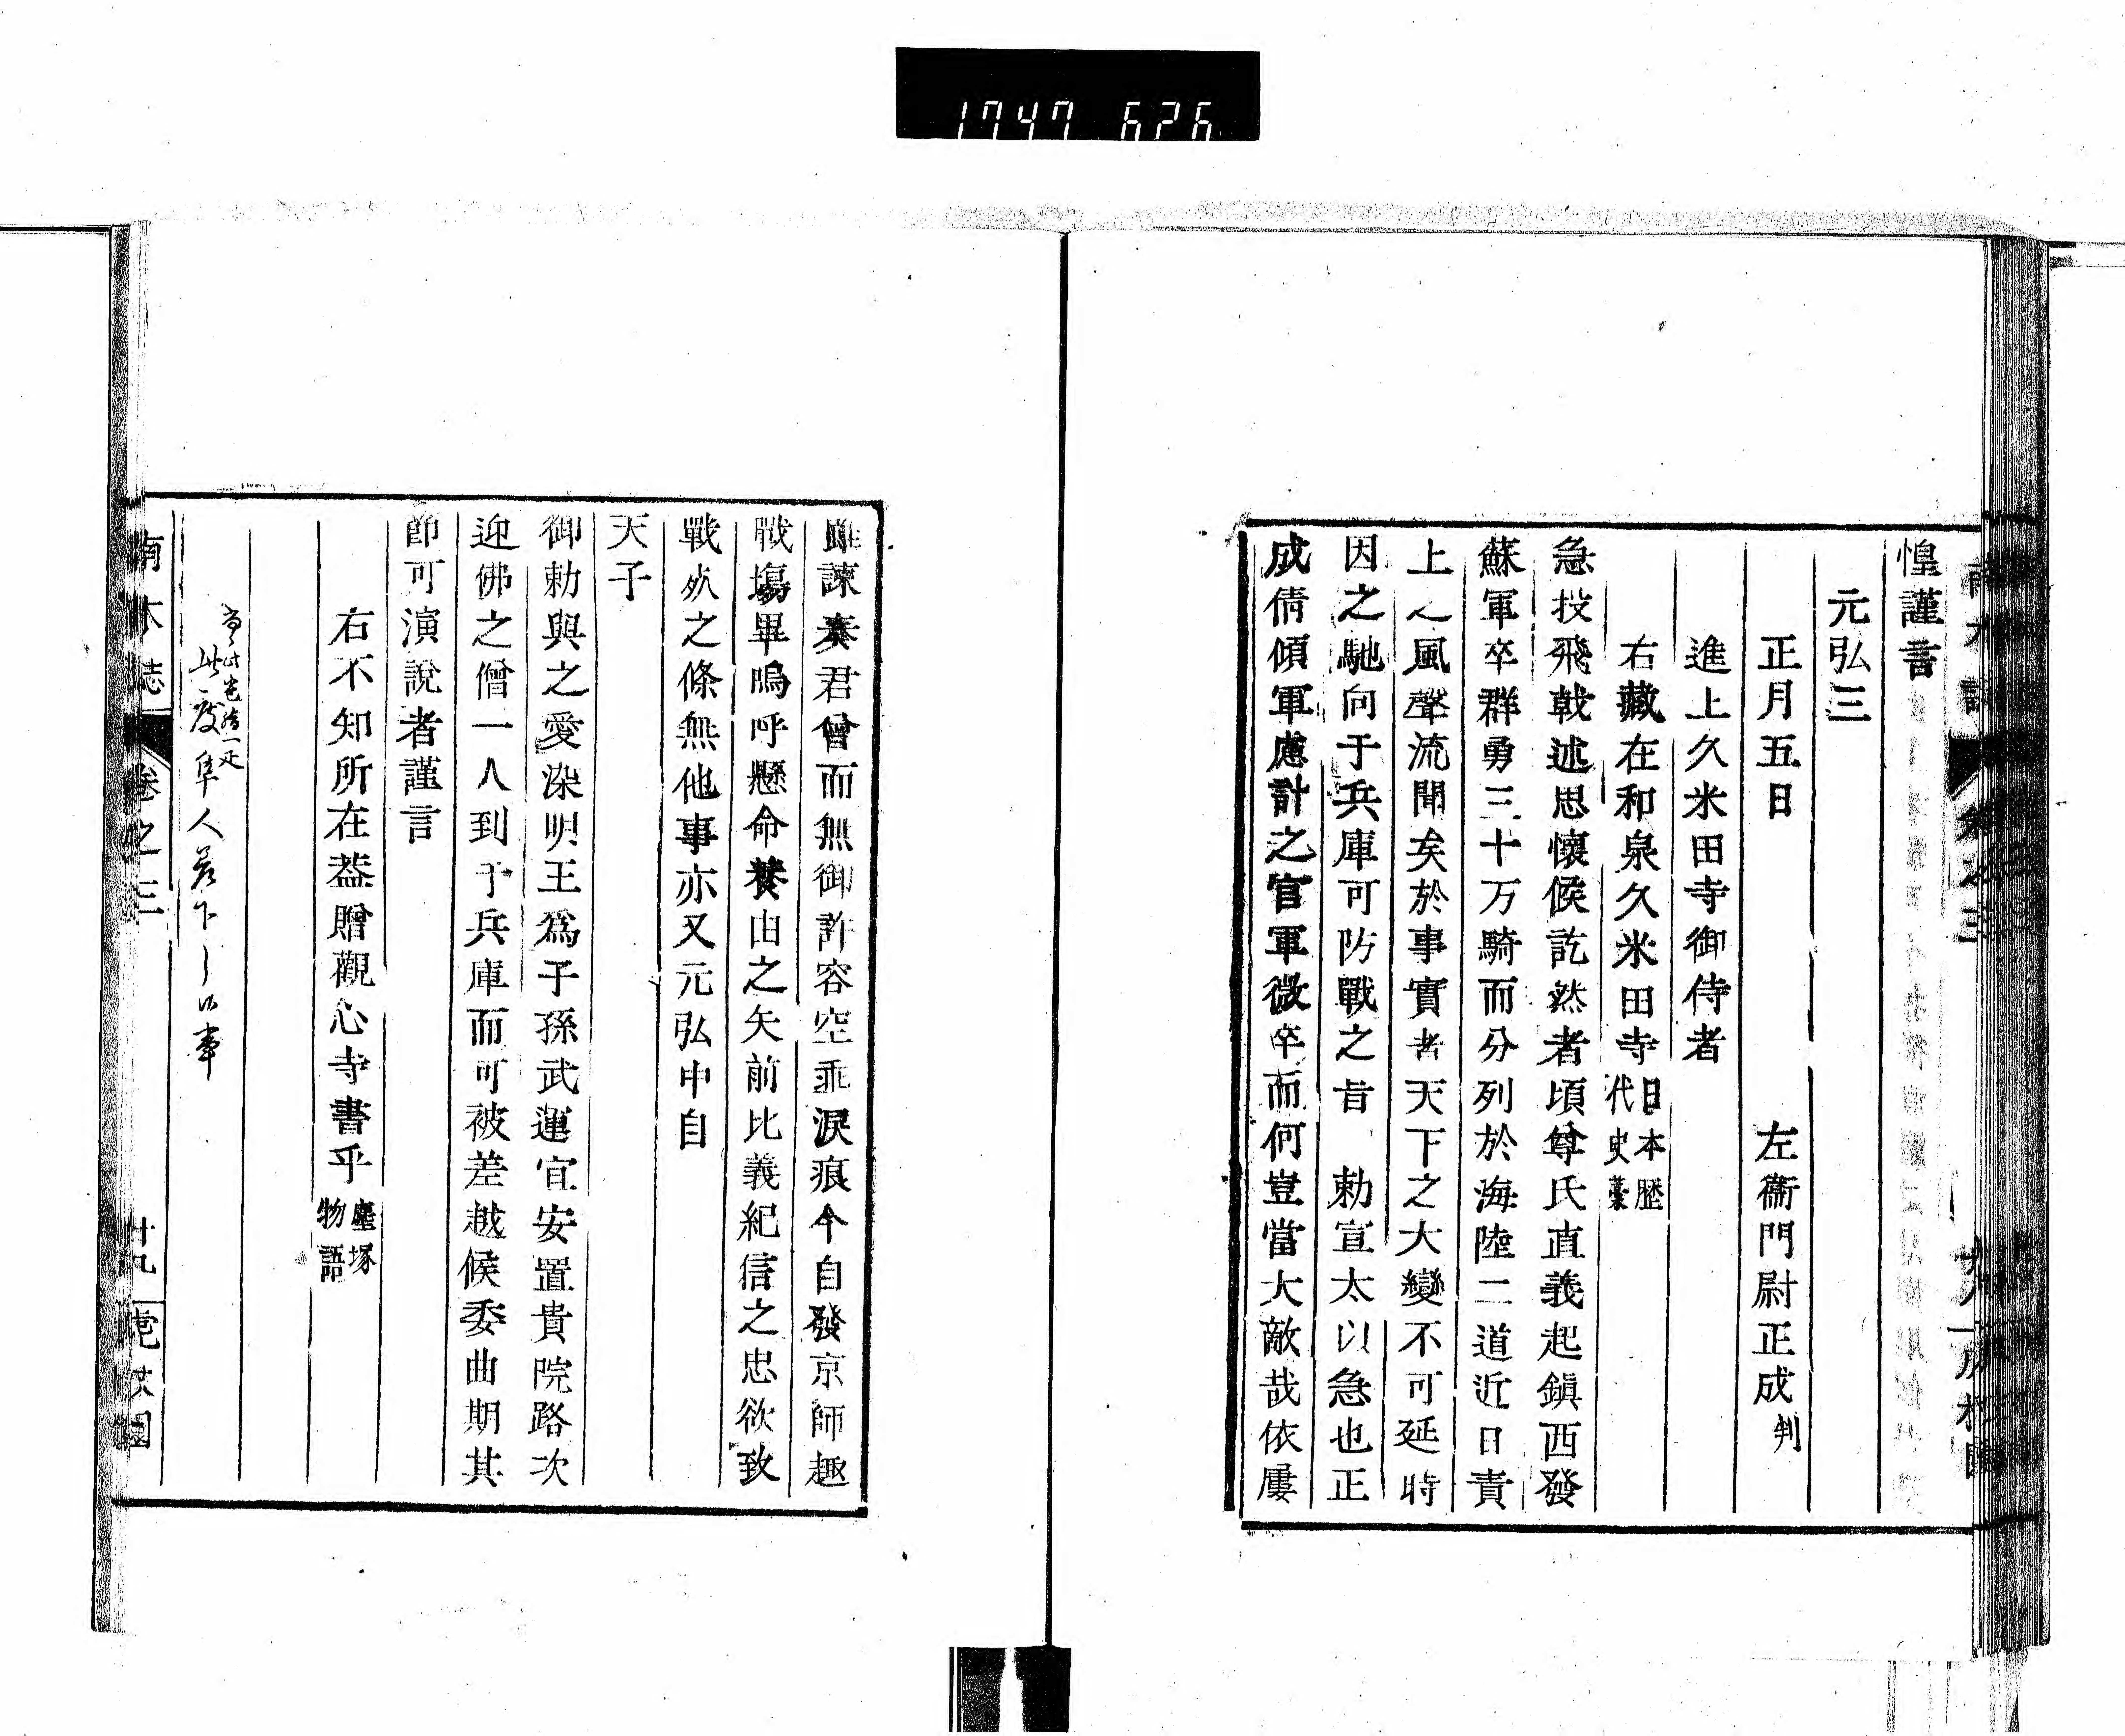 1747 626
惶謹言
元弘三
正月五日　左衞門尉正成判
進上久米田寺御侍者
右藏在和泉久米田寺日本歷代史藁
急投飛戟述思懷候訖然者頃尊氏直義起鎭西發
蘇軍卒群勇三十万騎而分列於海陸二道近日責
上之風聲流聞矣於事實者天下之大變不可延時
因之馳向于兵庫可防戰之旨　勅宣太以急也正
成倩傾軍慮計之官軍微卒而何豈當大敵哉依屢
雖諫奏君曾而無御許容空乖淚痕今自發京師趣
戰塲畢嗚呼懸命養由之矢前比義紀信之忠欲致
戰死之條無他事亦又元弘中自
天子
御勅與之愛染明王爲子孫武運宜安置貴院路次
迎佛之僧一人到于兵庫而可被差越候委曲期其
節可演說者謹言
右不知所在葢贈觀心寺書乎塵塚物語
此度隼人
南木誌　卷之三　廿九